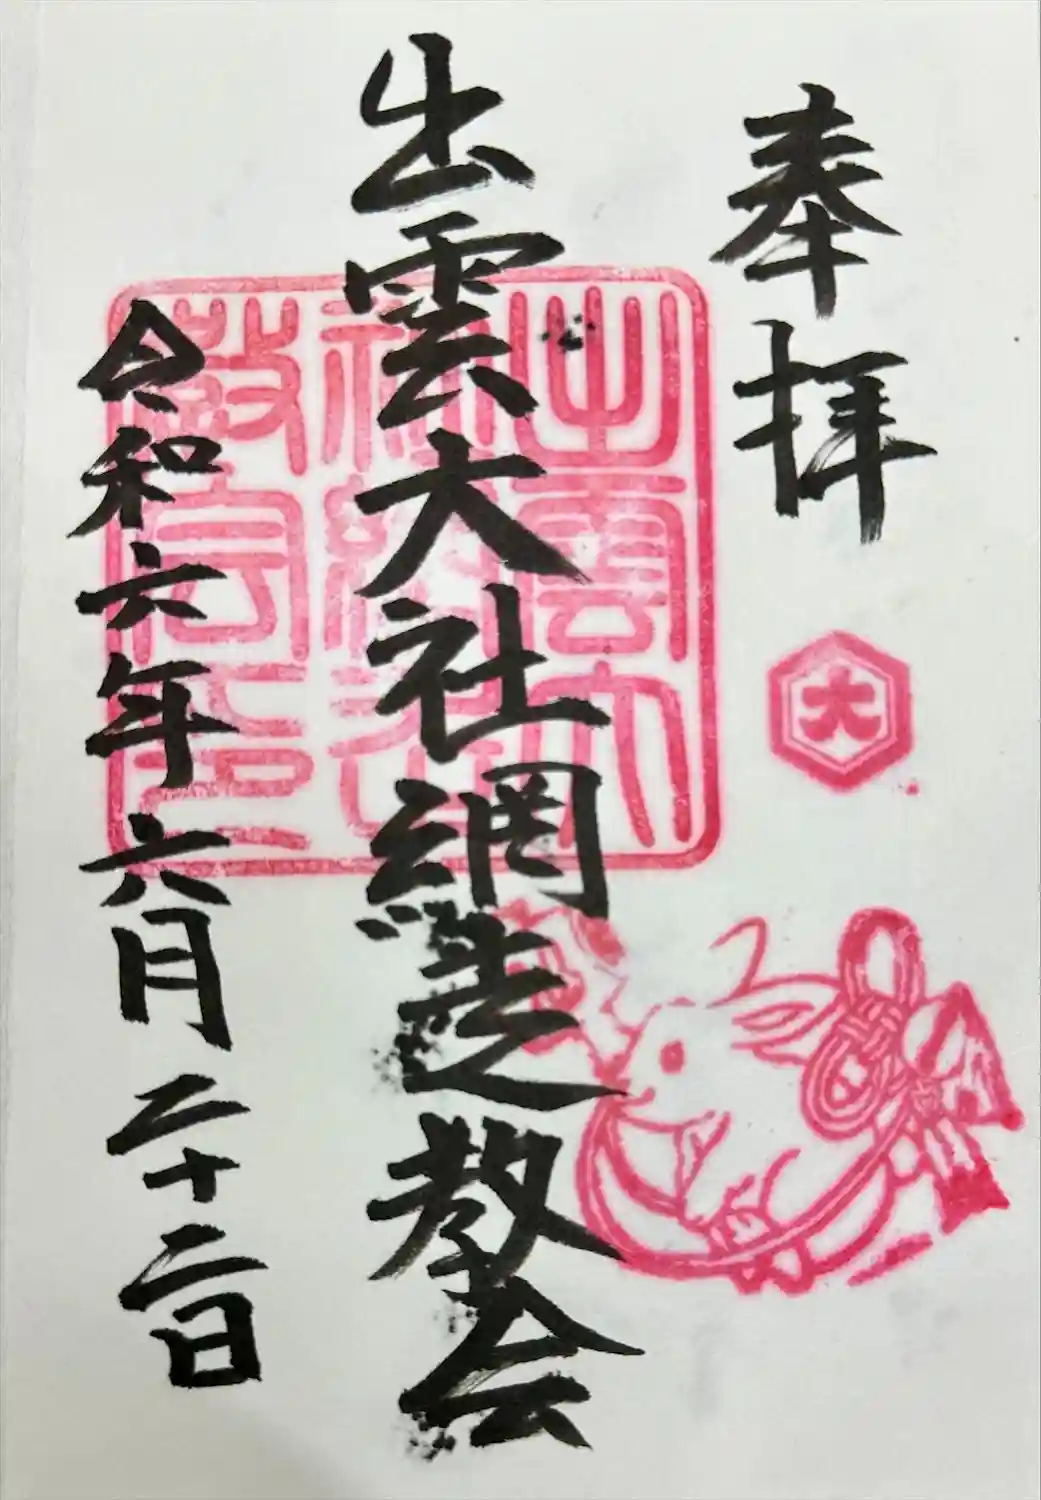 奉拝
大
出雲大社網走教会
出雲大
社網走
教会之印
令和六年六月二十二日